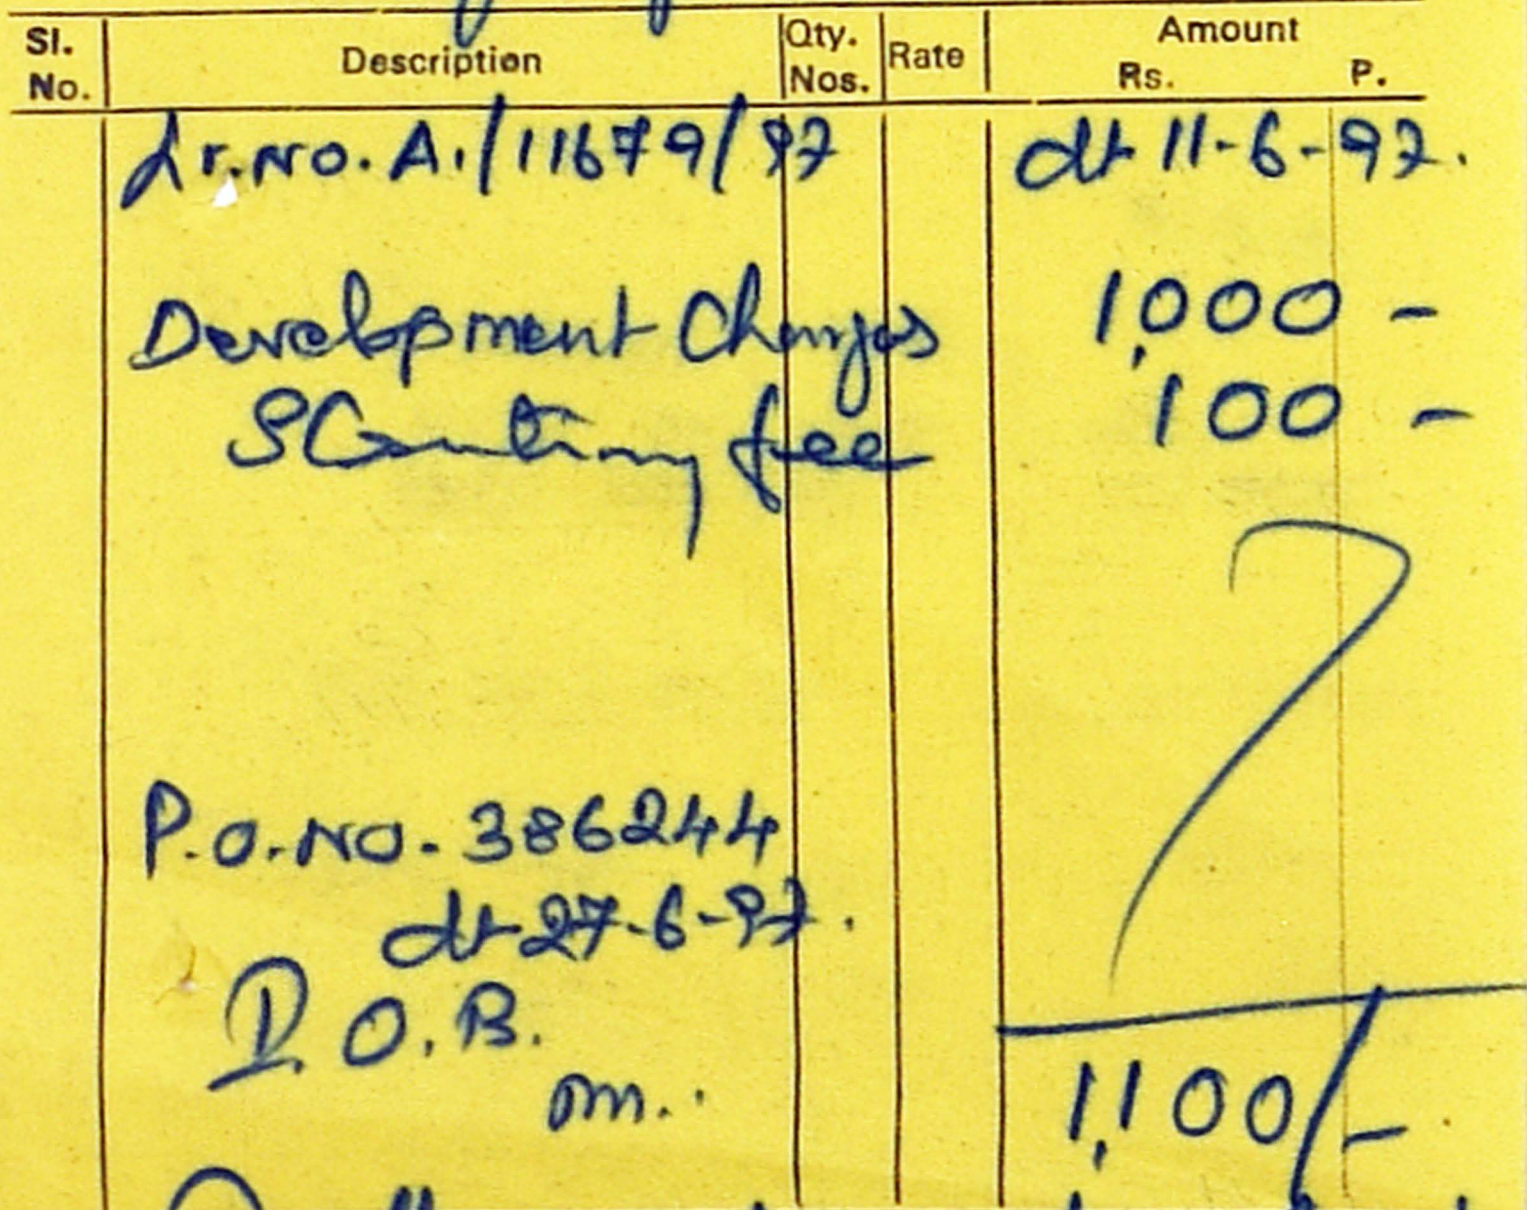 Sl. No. Description Qty. Nos. Rate Amount Rs. P.
Lr. No. A./11679/97 dt 11-6-97.
Development Charges 1,000 -
SCrutiny fee 100 -
P.O. No. 386244
dt 27-6-97.
I.O.B.
1,100/-